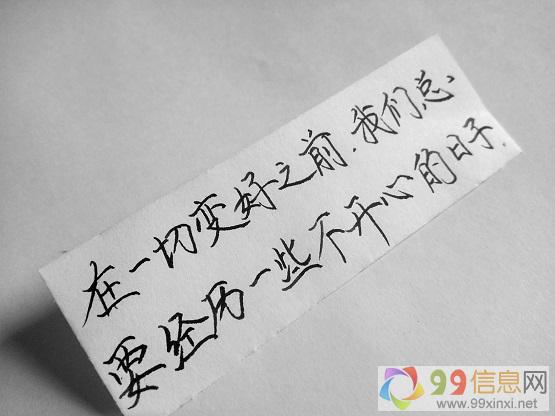 在一切变好之前,我们总
要经历一些不开心的日子.
99信息网
www.99xinxi.net